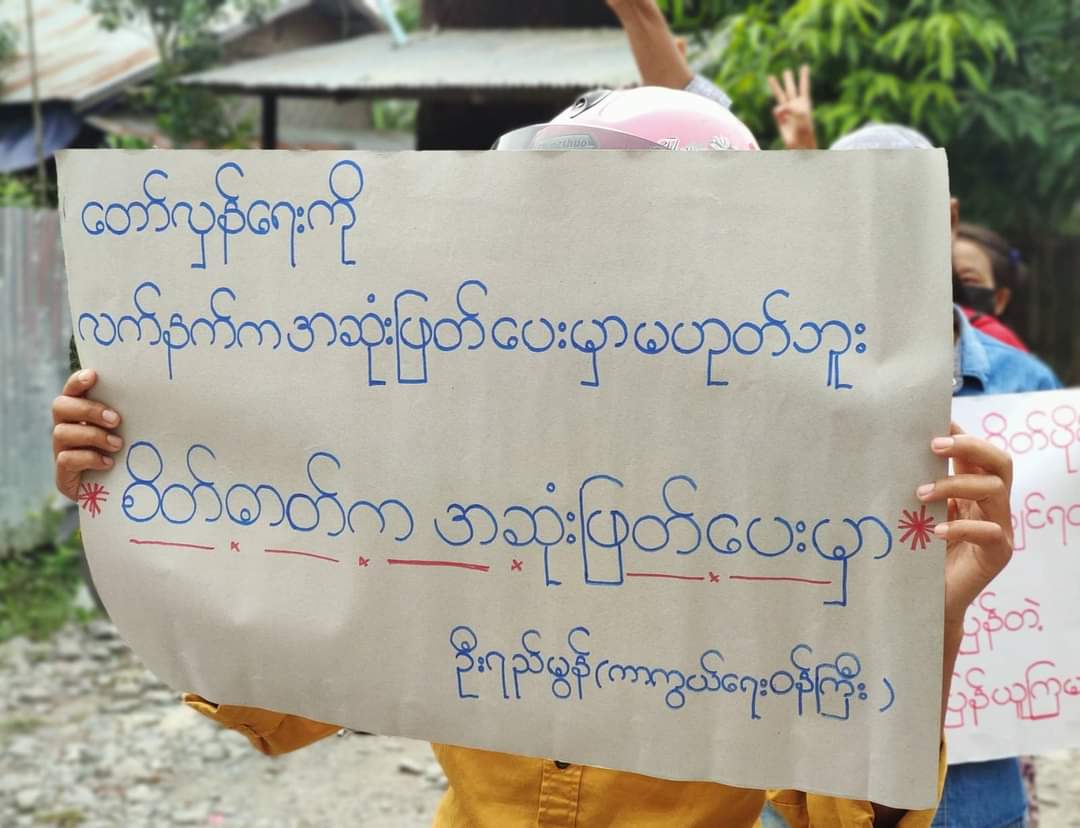 တော်လှန်ရေးကို
လက်နက်ကအဆုံးဖြတ်ပေးမှာမဟုတ်ဘူး
* စိတ်ဓာတ်က အဆုံးဖြတ်ပေးမှာ *
ဦးရည်မွန် (ကာကွယ်ရေးဝန်ကြီး)